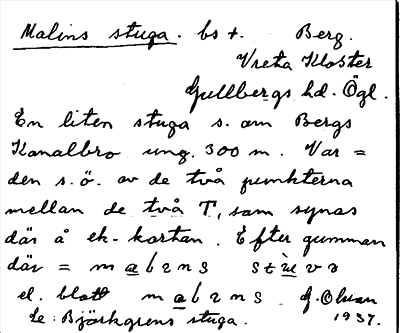 Malins stuga. bst. Berg.
Vreta Kloster
Gullbergs hd. Ögl.
En liten stuga s. om Bergs
Kanalbro ung. 300 m. Var =
den s.ö. av de två punkterna
mellan de två T, som synas
där å ek-kartan. Efter gumman
där = m a l ı n s s t ù v a
el. blott m a l ı n s. G. Olson
Se: Björkgrens stuga. 1937.